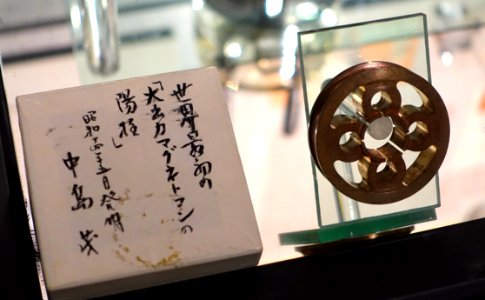 世界最初の
「大出力マグネトロンの
陽極」
昭和十四年五月発明
中島茂